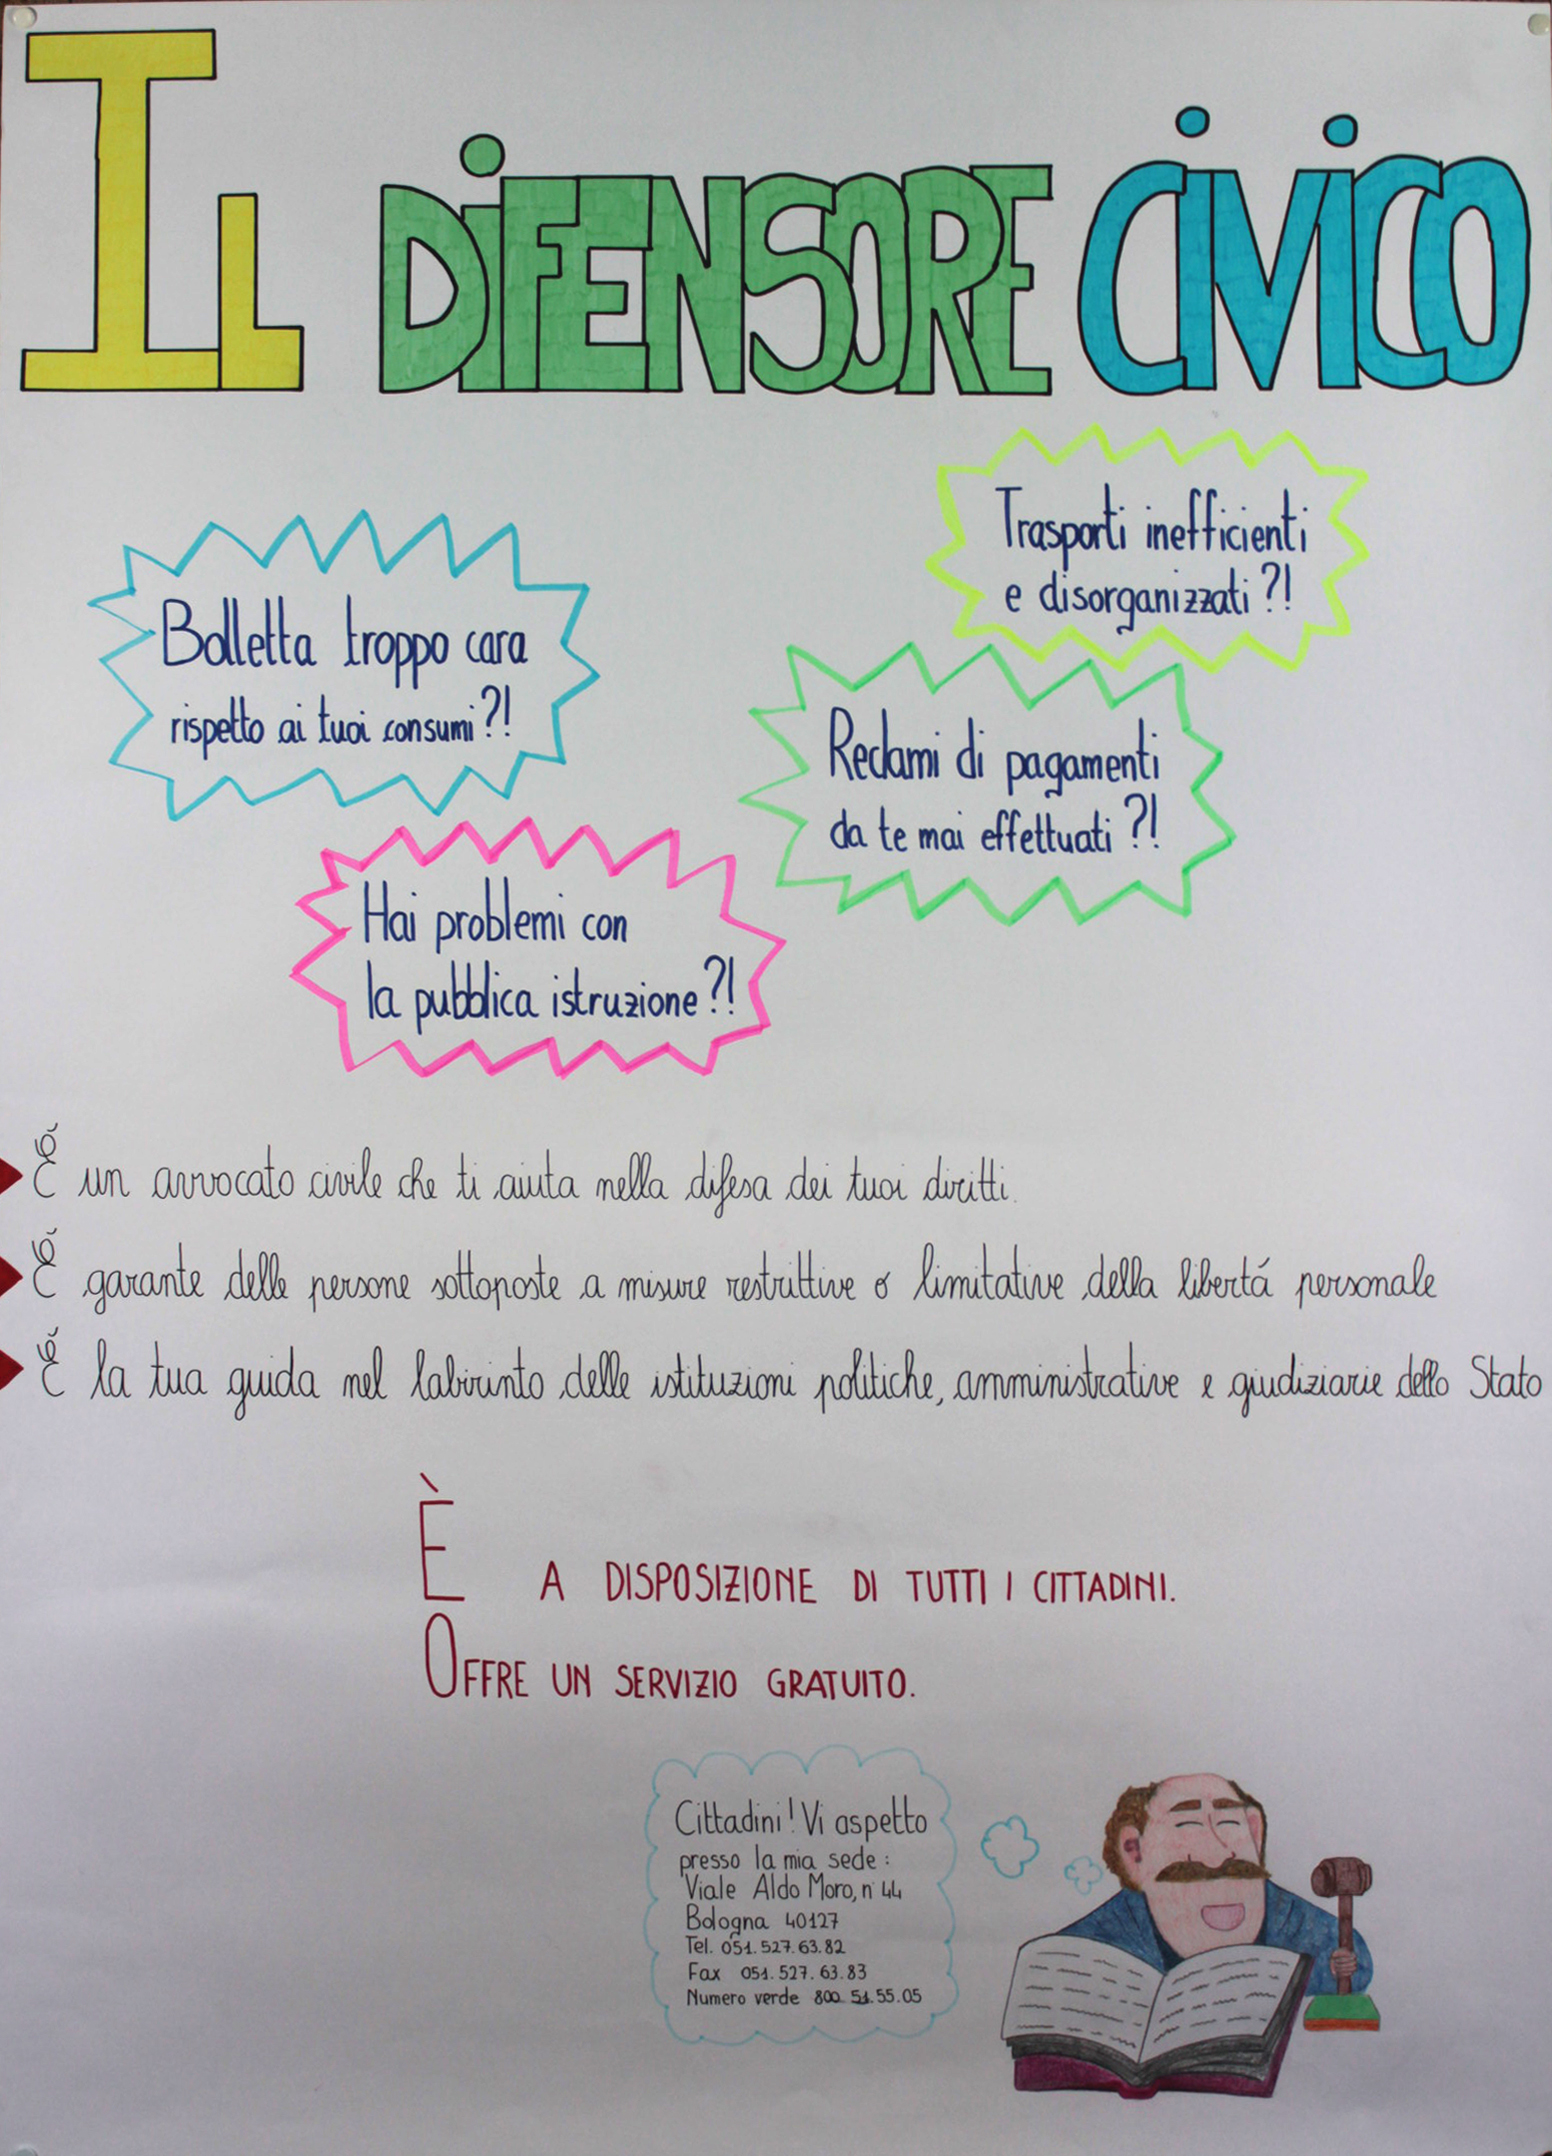 IL DiFENSORE CiViCO
Trasporti inefficienti
e disorganizzati?!
Bolletta troppo cara
rispetto ai tuoi consumi?!
Reclami di pagamenti
da te mai effettuati?!
Hai problemi con
la pubblica istruzione?!
É un avvocato civile che ti aiuta nella difesa dei tuoi diritti.
É garante delle persone sottoposte a misure restrittive o limitative della libertá personale
É la tua guida nel labirinto delle istituzioni politiche, amministrative e giudiziarie dello Stato
È A DISPOSIZIONE DI TUTTI I CITTADINI.
OFFRE UN SERVIZIO GRATUITO.
Cittadini! Vi aspetto
presso la mia sede:
Viale Aldo Moro, n° 44
Bologna 40127
Tel. 051.527.63.82
Fax 051.527.63.83
Numero verde 800 51.55.05